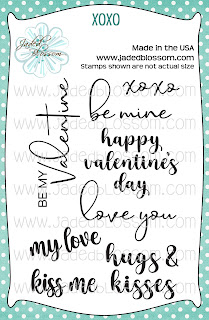 XOXO
Jaded Blossom
Made in the USA
www.jadedblossom.com
Stamps shown are not actual size
BE MY Valentine
xoxo
be mine
happy
valentine's
day
love you
my love
kiss me
hugs &
kisses
www.JadedBlossom.com
www.JadedBlossom.com
www.JadedBlossom.com
www.JadedBlossom.com